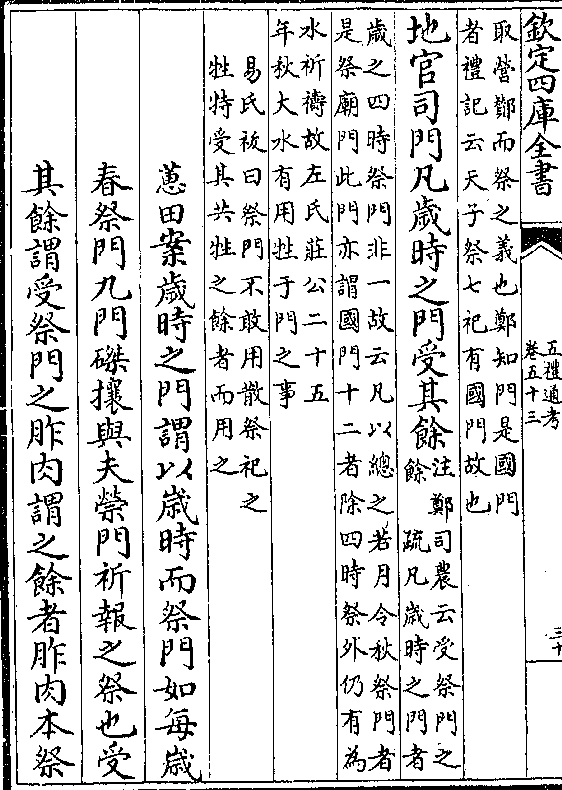 欽定四庫全書
五禮通考
卷五十三
三十
取營酇而祭之義也鄭知門是國門
者禮記云天子祭七祀有國門故也
地官司門凡歲時之門受其餘
注鄭司農云受祭門之
餘 疏凡歲時之門者
歲之四時祭門非一故云凡以總之若月令秋祭門者
是祭廟門此門亦謂國門十二者除四時祭外仍有為
水祈禱故左氏莊公二十五
年秋大水有用牲于門之事
易氏袚曰祭門不敢用散祭祀之
牲特受其共牲之餘者而用之
蕙田案歲時之門謂以歲時而祭門如每歲
春祭門九門磔攘與夫禜門祈報之祭也受
其餘謂受祭門之胙肉謂之餘者胙肉本祭